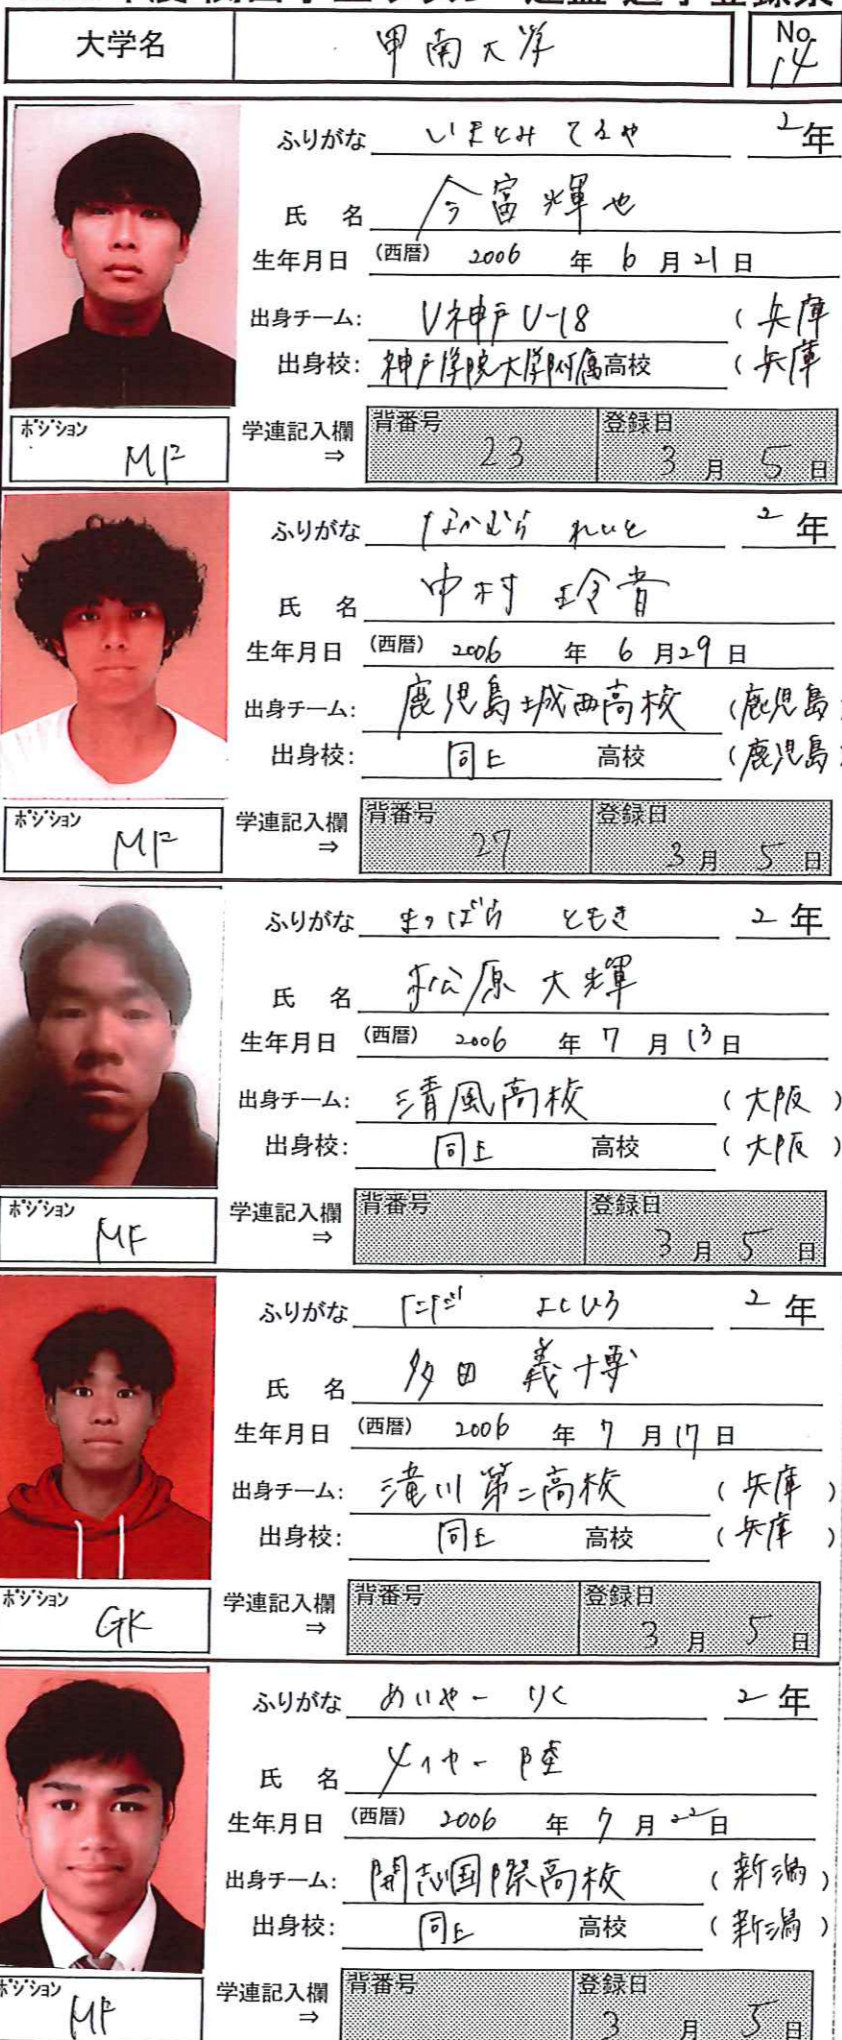 大学名 甲南大学 No. 14
ふりがな いまとみ てるや 2年
氏 名 今富輝也
生年月日 (西暦) 2006 年 6 月 21 日
出身チーム: V神戸U-18 (兵庫
出身校: 神戸学院大学附属高校 (兵庫
ポジション MF 学連記入欄 ⇒ 背番号 23 登録日 3 月 5 日
ふりがな なかむら れいと 2 年
氏 名 中村 玲音
生年月日 (西暦) 2006 年 6 月 29 日
出身チーム: 鹿児島城西高校 (鹿児島
出身校: 同上 高校 (鹿児島
ポジション MF 学連記入欄 ⇒ 背番号 27 登録日 3 月 5 日
ふりがな まつばら ともき 2 年
氏 名 松原 大輝
生年月日 (西暦) 2006 年 7 月 13 日
出身チーム: 清風高校 (大阪)
出身校: 同上 高校 (大阪)
ポジション MF 学連記入欄 ⇒ 背番号 登録日 3 月 5 日
ふりがな ただ よしひろ 2 年
氏 名 多田 義博
生年月日 (西暦) 2006 年 7 月 17 日
出身チーム: 滝川第二高校 (兵庫)
出身校: 同上 高校 (兵庫)
ポジション GK 学連記入欄 ⇒ 背番号 登録日 3 月 5 日
ふりがな めいやー りく 2 年
氏 名 メイヤー 陸
生年月日 (西暦) 2006 年 7 月 22 日
出身チーム: 開志国際高校 (新潟)
出身校: 同上 高校 (新潟)
ポジション MF 学連記入欄 ⇒ 背番号 登録日 3 月 5 日